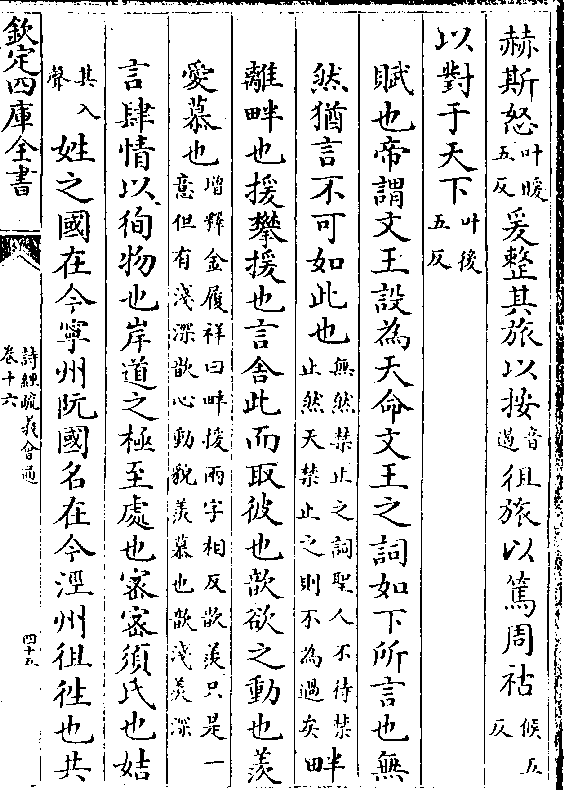 赫斯怒叶暖五反爰整其旅以按音遏徂旅以篤周祜候五反
以對于天下叶後五反
賦也帝謂文王設為天命文王之詞如下所言也無
然猶言不可如此也無然禁止之詞聖人不待禁止然天禁止之則不為過矣畔
離畔也援攀援也言舍此而取彼也歆欲之動也羨
愛慕也增釋金履祥曰畔援兩字相反歆羨只是一意但有淺深歆心動貌羨慕也歆淺羨深
言肆情以徇物也岸道之極至處也宻宻須氏也姞
其入聲姓之國在今寧州阮國名在今涇州徂徃也共
欽定四庫全書
詩經疏義會通
卷十六
四十五